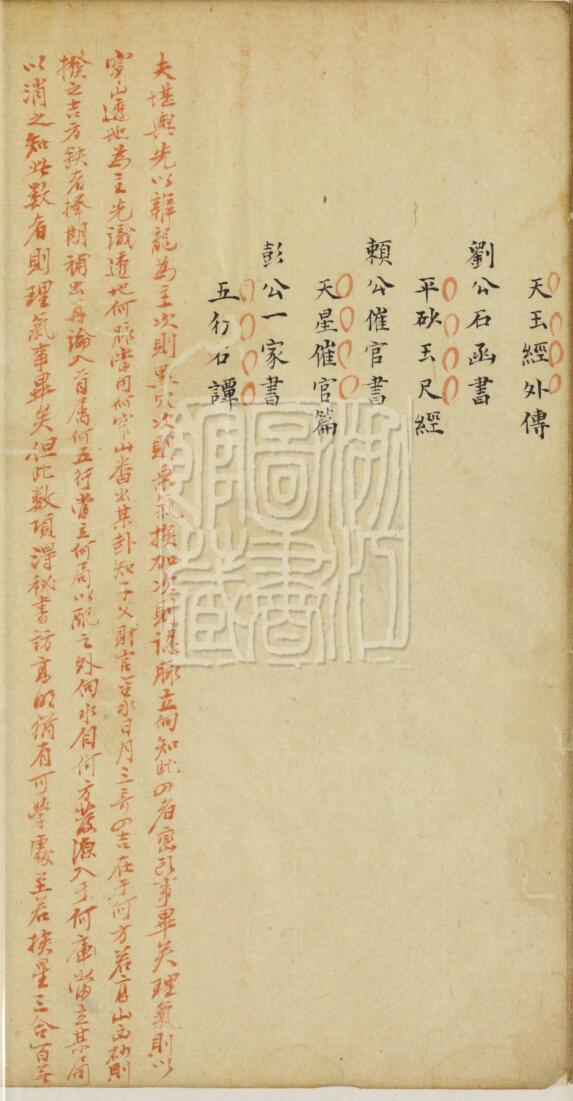 天玉經外傳
劉公石函書
平砂玉尺經
賴公催官書
天星催官篇
彭公一家書
五行石譚
夫堪輿先以辨龍為主次則點穴次則乘氣挨加次則認脉立向知此四者巒頭事畢矣理氣則以
穿山透地為主先識透地何脉當用何穿山查出某卦知子父財官至水日月三奇四吉在于何方若有山砂則
撥之吉方缺者擇期補出再論入首屬何五行當立何局以配之外向水自何方發源入于何庫當立某局
以消之知此數者則理氣事畢矣但此數項得秘書訪高明猶有可學處至若挨星三合百無
浙江圖書館藏